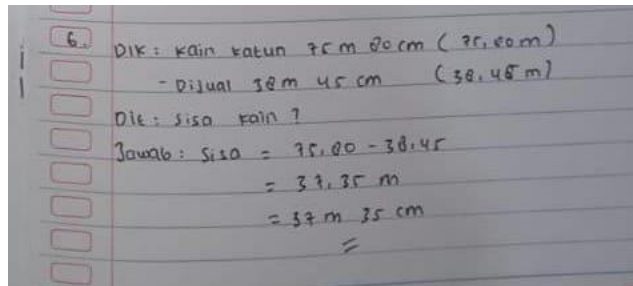 6. Dik : kain katun 75 m 80 cm ( 75,80 m )
- Dijual 38 m 45 cm ( 38,45 m )
Dit : Sisa kain ?
Jawab : Sisa = 75,80 - 38,45
= 37,35 m
= 37 m 35 cm
=